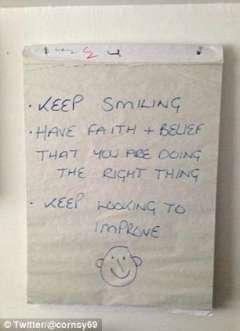 · KEEP SMILING
· HAVE FAITH + BELIEF
THAT YOU ARE DOING
THE RIGHT THING
· KEEP LOOKING TO
IMPROVE
© Twitter@cornsy69